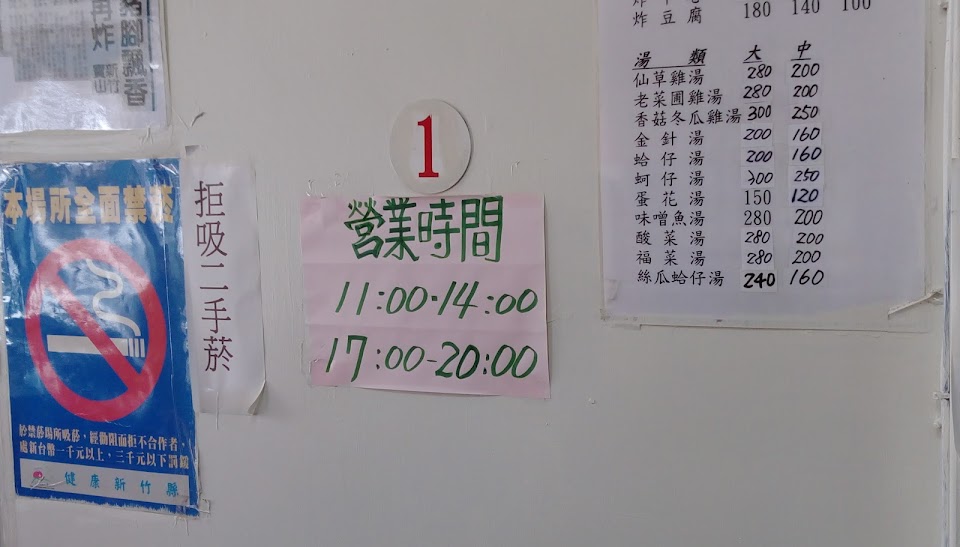 再炸
香
本場所全面禁菸
於禁菸場所吸菸，經勸阻而拒不合作者，
處新台幣一千元以上，三千元以下罰鍰
健康新竹縣
拒吸二手菸
1
營業時間
11:00-14:00
17:00-20:00
炸豆腐 180 140 100
湯類 大 中
仙草雞湯 280 200
老菜圃雞湯 280 200
香菇冬瓜雞湯 300 250
金針湯 200 160
蛤仔湯 200 160
蚵仔湯 300 250
蛋花湯 150 120
味噌魚湯 280 200
酸菜湯 280 200
福菜湯 280 200
絲瓜蛤仔湯 240 160